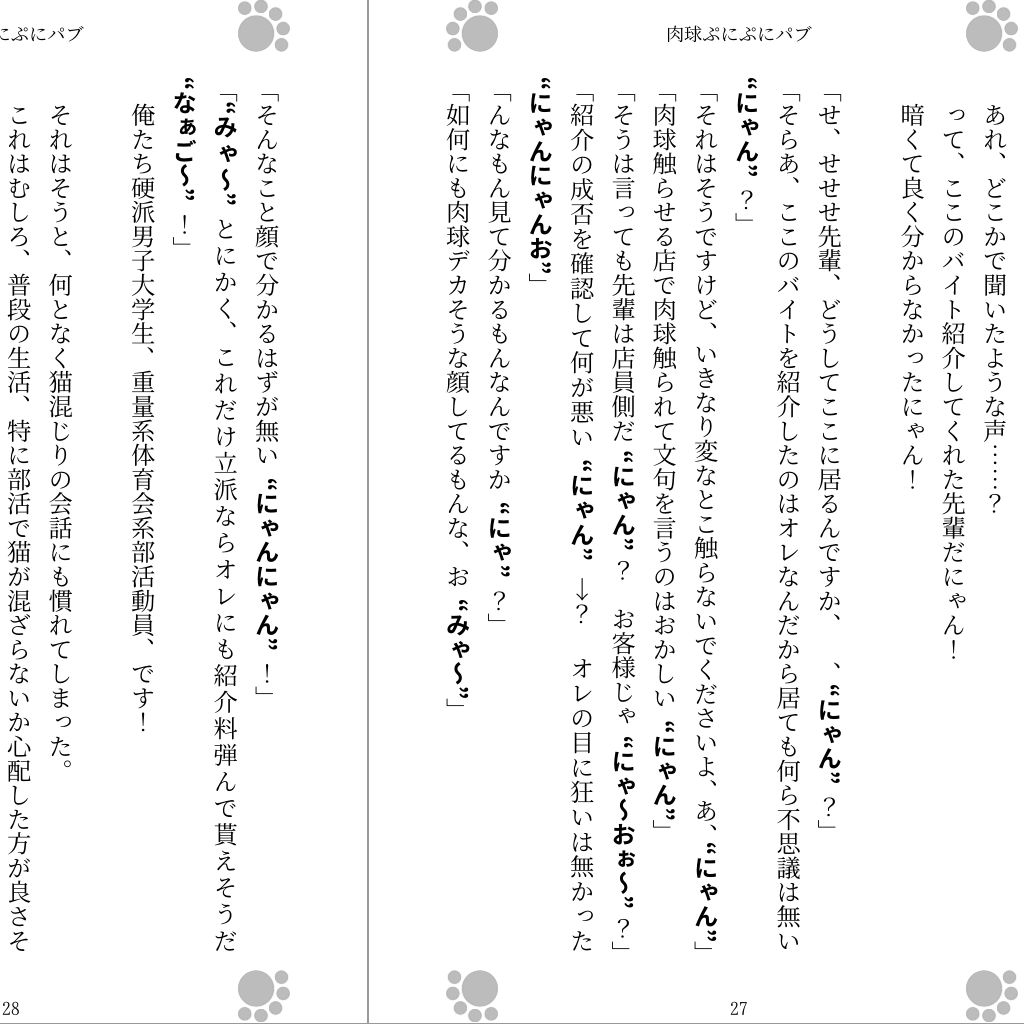 肉球ぷにぷにパブ
あれ、どこかで聞いたような声……？
って、ここのバイト紹介してくれた先輩だにゃん！
暗くて良く分からなかったにゃん！
「せ、せせせ先輩、どうしてここに居るんですか、　、“にゃん”？」
「そらあ、ここのバイトを紹介したのはオレなんだから居ても何ら不思議は無い
“にゃん”？」
「それはそうですけど、いきなり変なとこ触らないでくださいよ、あ、“にゃん”」
「肉球触らせる店で肉球触られて文句を言うのはおかしい“にゃん”」
「そうは言っても先輩は店員側だ“にゃん”？　お客様じゃ“にゃ〜おぉ〜”？」
「紹介の成否を確認して何が悪い“にゃん”→？　オレの目に狂いは無かった
“にゃんにゃんお”」
「んなもん見て分かるもんなんですか“にゃ”？」
「如何にも肉球デカそうな顔してるもんな、お“みゃ〜”」
27
にぷにパブ
「そんなこと顔で分かるはずが無い“にゃんにゃん”！」
「“みゃ〜”とにかく、これだけ立派ならオレにも紹介料弾んで貰えそうだ
“なぁご〜”！」
俺たち硬派男子大学生、重量系体育会系部活動員、です！
それはそうと、何となく猫混じりの会話にも慣れてしまった。
これはむしろ、普段の生活、特に部活で猫が混ざらないか心配した方が良さそ
28